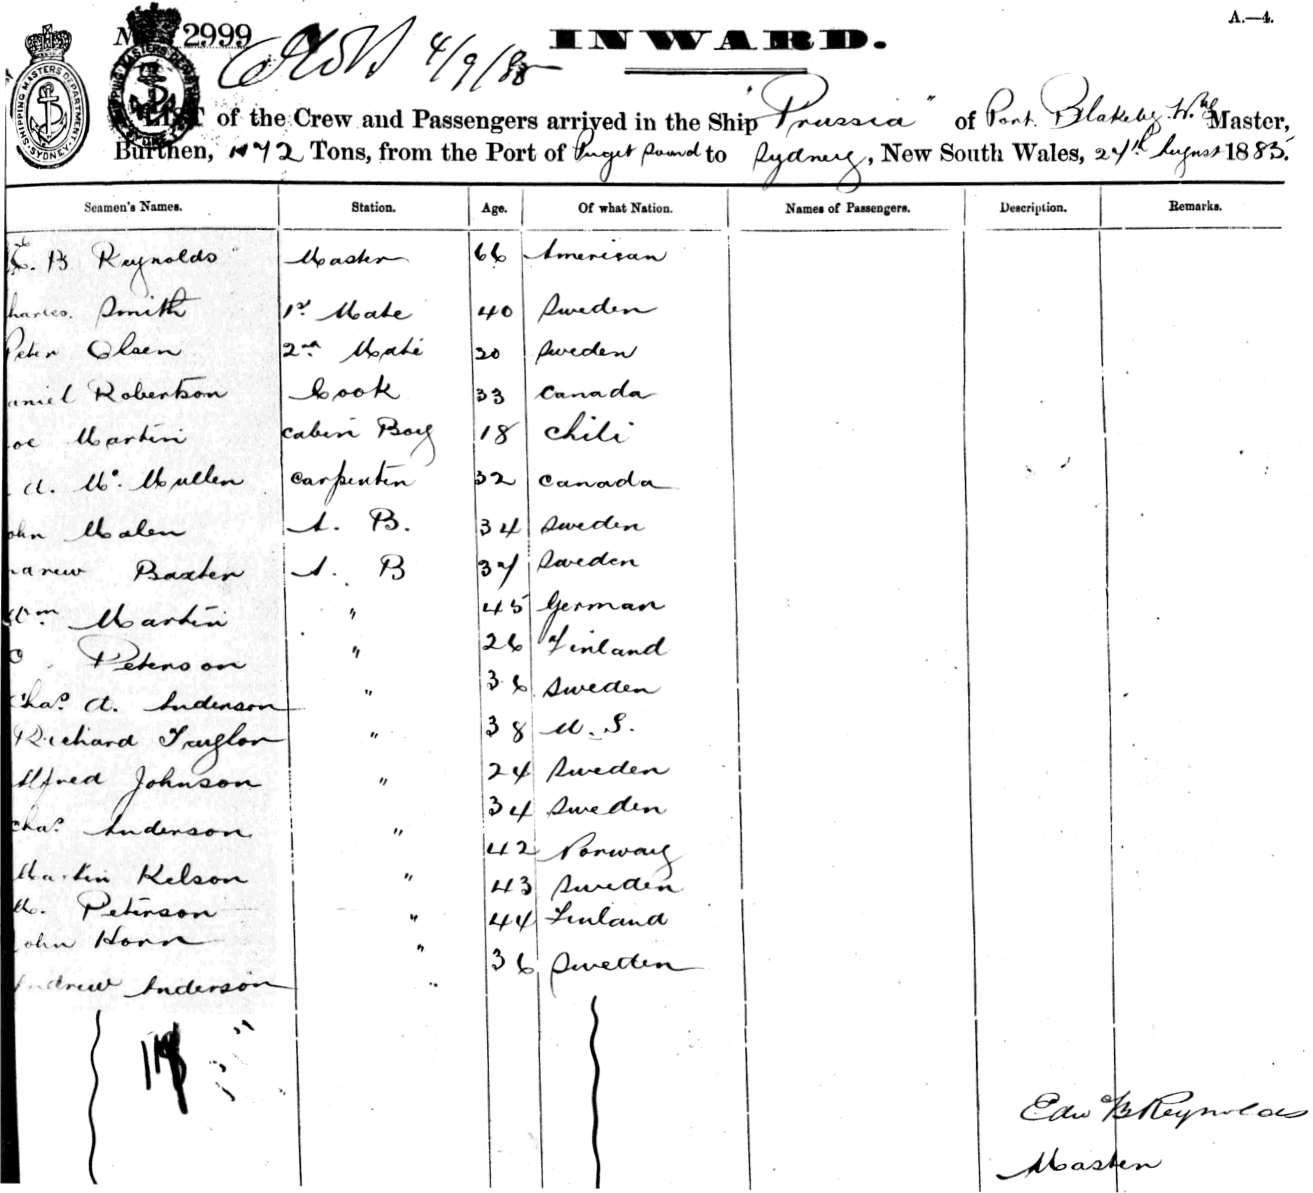 A.—4.
No 2999
4/9/85
INWARD.
SHIPPING MASTERS DEPARTMENT SYDNEY
LIST of the Crew and Passengers arrived in the Ship "Prussia" of Port Blakeley W. Master,
Burthen, Tons, from the Port of Puget Sound to Sydney, New South Wales, 24th August 1885.
Seamen's Names. Station. Age. Of what Nation. Names of Passengers. Description. Remarks.
E. B Reynolds Master 66 American
harles. Smith 1st Mate 40 Sweden
Peter Olsen 2nd Mate 30 Sweden
aniel Robertson Cook 33 Canada
oe Martin Cabin Boy 18 Chili
A. Mc. Mullen Carpenter 32 Canada
ohn Malen A. B. 34 Sweden
ndrew Baxter A. B 37 Sweden
Wm Martin " 45 German
Peterson " 26 Finland
Chas. A. Anderson " 36 Sweden
Richard Taylor " 38 U. S.
Alfred Johnson " 24 Sweden
Chas. Anderson " 34 Sweden
Martin Kelson " 42 Norway
M. Peterson " 43 Sweden
John Horn " 44 Finland
Andrew Anderson " 36 Sweden
Edw B Reynolds
Master